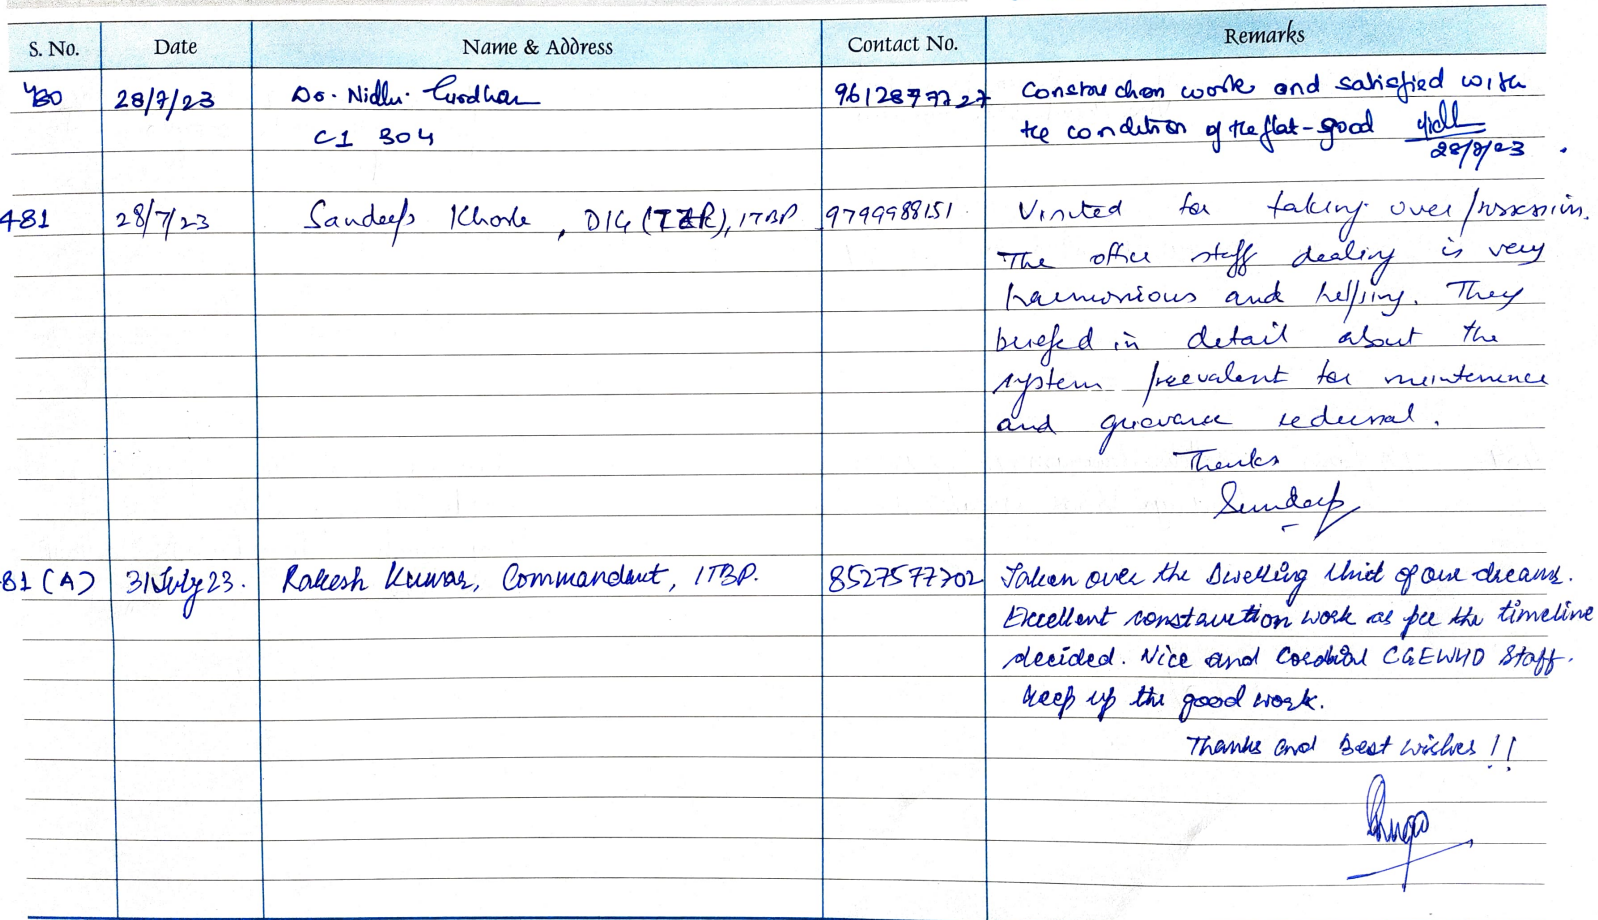 S. No. Date Name & Address Contact No. Remarks
480 28/7/23 Dr. Nidhi 9612877727 Construction work and satisfied with
C1 304 the condition of the flat - good
28/7/23
481 28/7/23 Sandeep Khosla, DIG (), ITBP 9799988151 Visited for taking over possession.
The office staff dealing is very
harmonious and helping. They
briefed in detail about the
system prevalent for maintenence
and grievance redressal.
Thanks
Sandeep
81 (A) 31 July 23. Rakesh Kumar, Commandant, ITBP. 8527577202 Taken over the Dwelling Unit of our dreams.
Excellent construction work as per the timeline
decided. Nice and Cordial CGEWHO Staff.
Keep up the good work.
Thanks and Best wishes !!